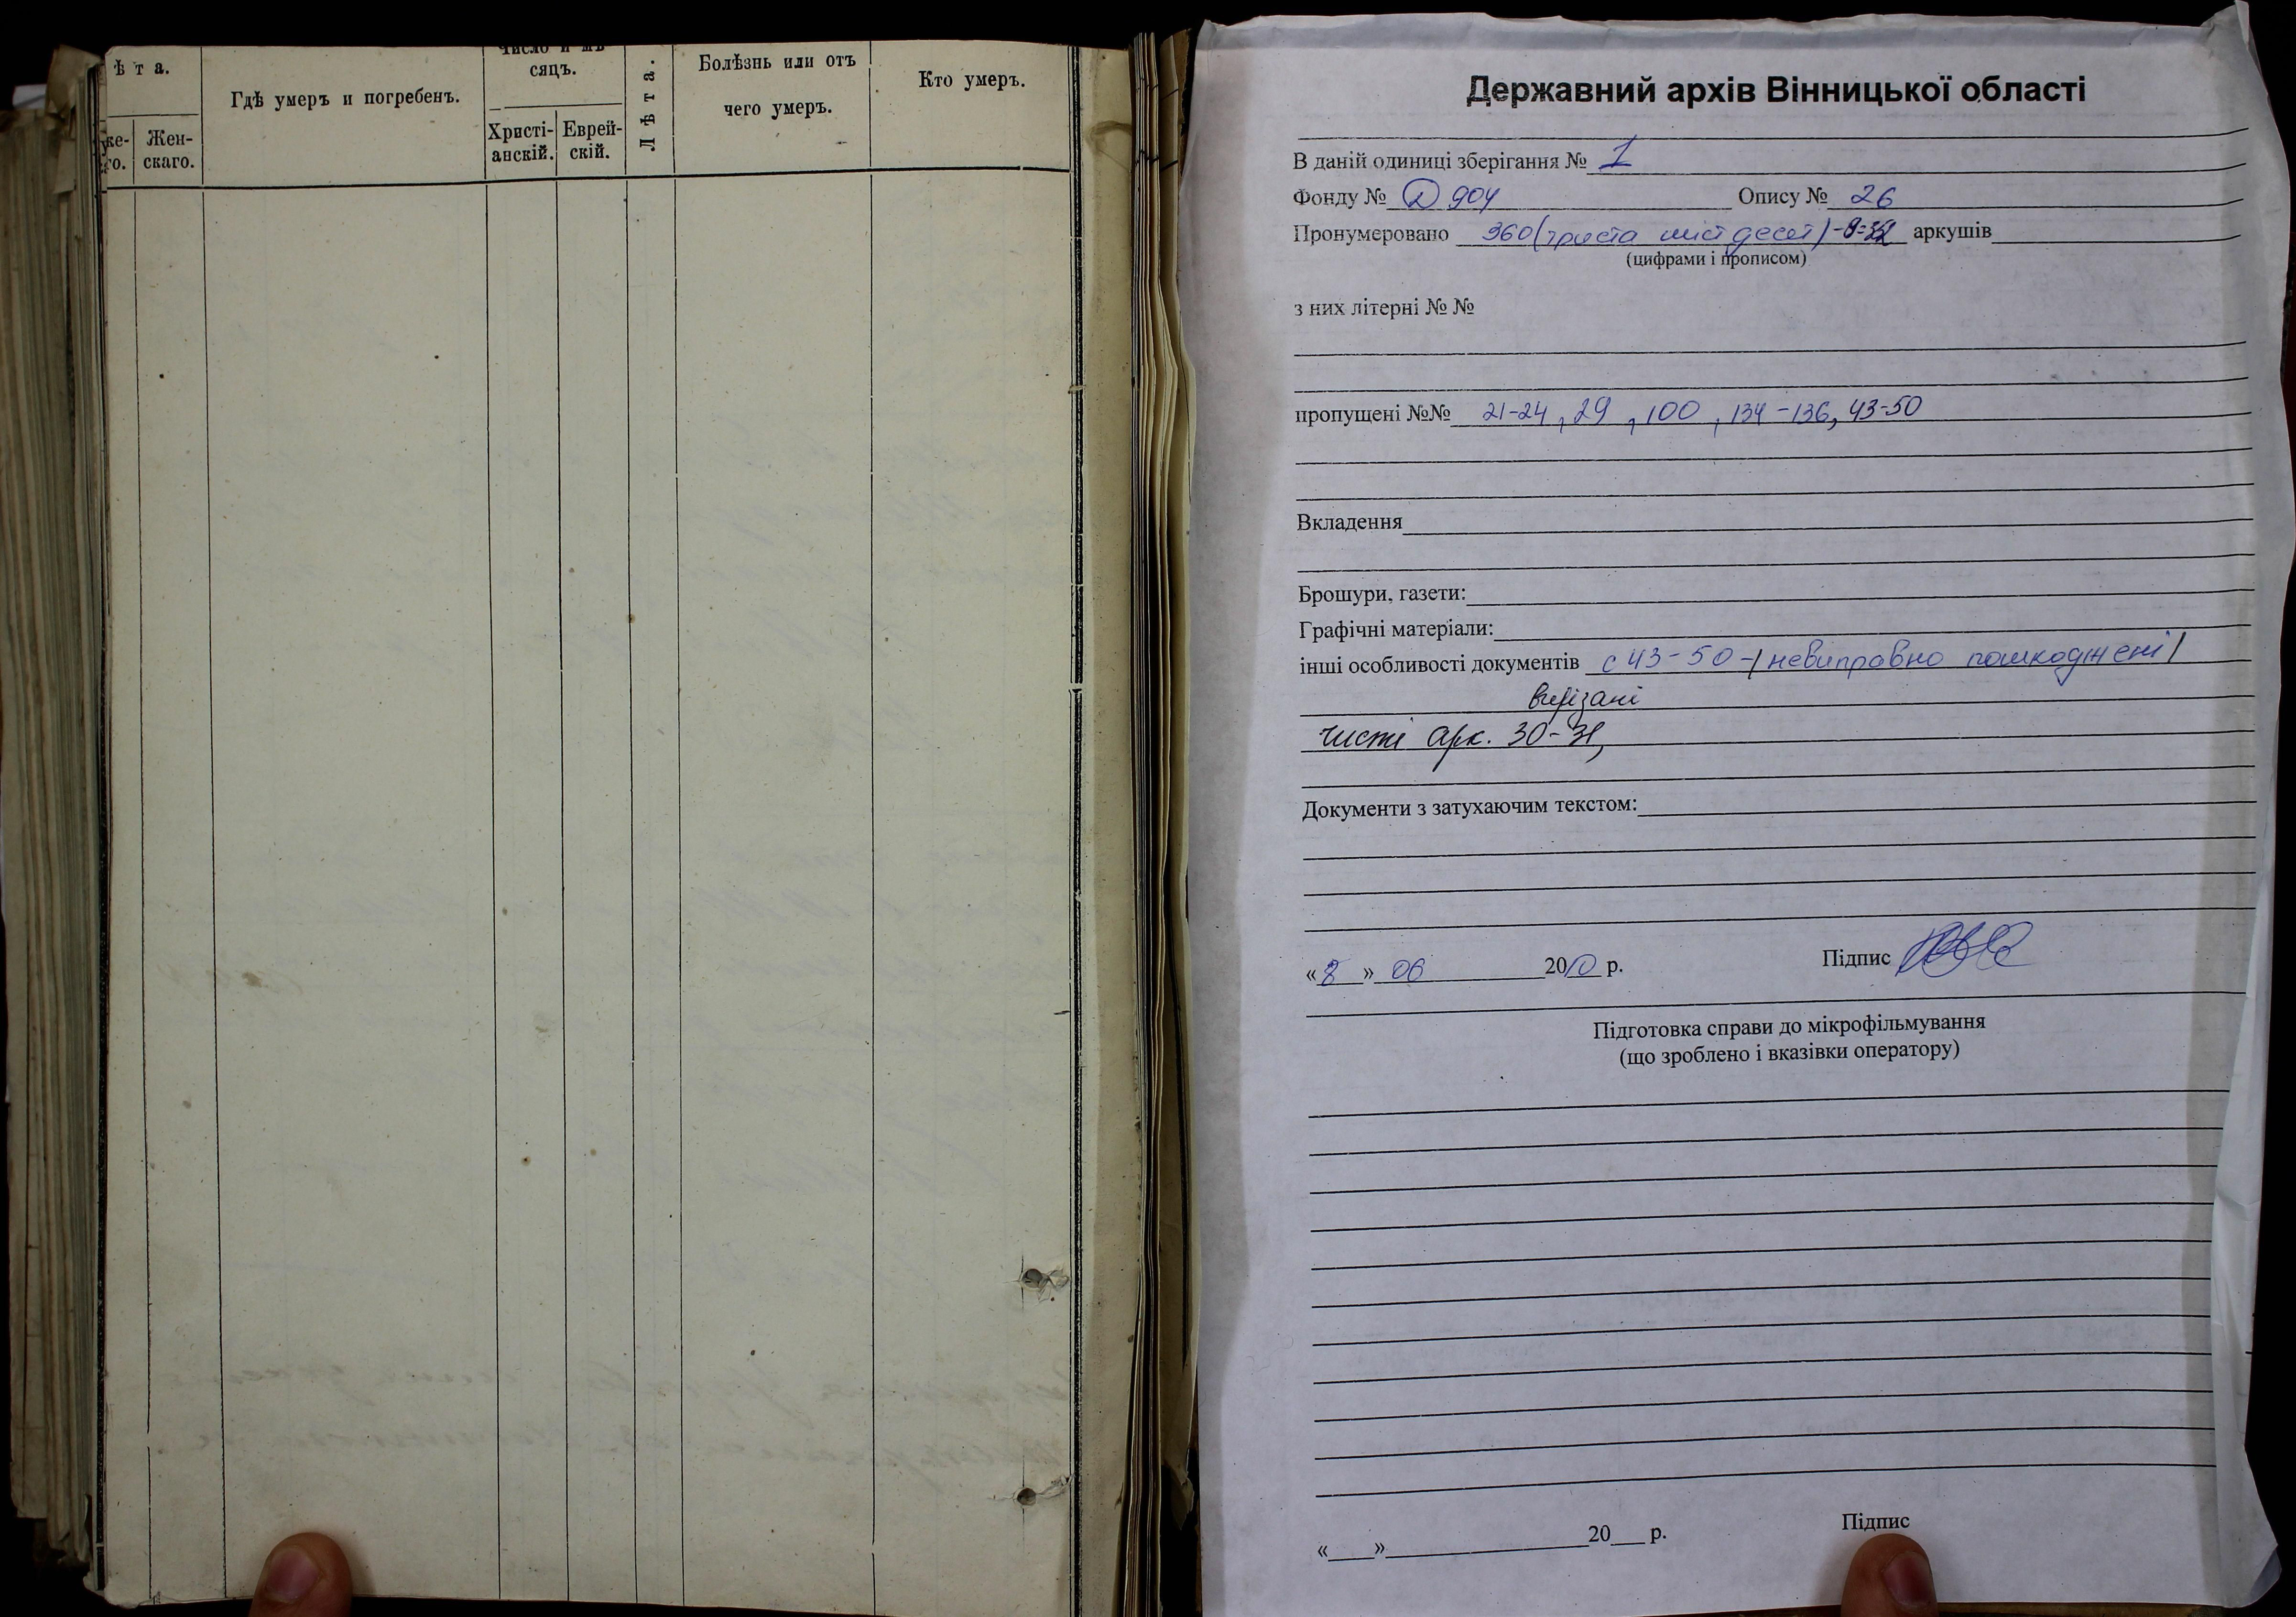 ѣ т а.
же-
го.
Жен-
скаго.
Гдѣ умеръ и погребенъ.
Число и мѣ-
сяцъ.
Христі-
анскій.
Еврей-
скій.
Лѣта.
Болѣзнь или отъ
чего умеръ.
Кто умеръ.
Державний архів Вінницької області
В даній одиниці зберігання № 1
Фонду № Д 904 Опису № 26
Пронумеровано 360 (триста шістдесят) аркушів
(цифрами і прописом)
з них літерні № №
пропущені №№ 21-24, 29, 100, 134-136, 43-50
Вкладення
Брошури, газети:
Графічні матеріали:
інші особливості документів с 43-50-/невиправно пошкоджені/
вирізані
чисті арк. 30-31,
Документи з затухаючим текстом:
«8» 06 2010 р. Підпис
Підготовка справи до мікрофільмування
(що зроблено і вказівки оператору)
«___»______20___ р. Підпис